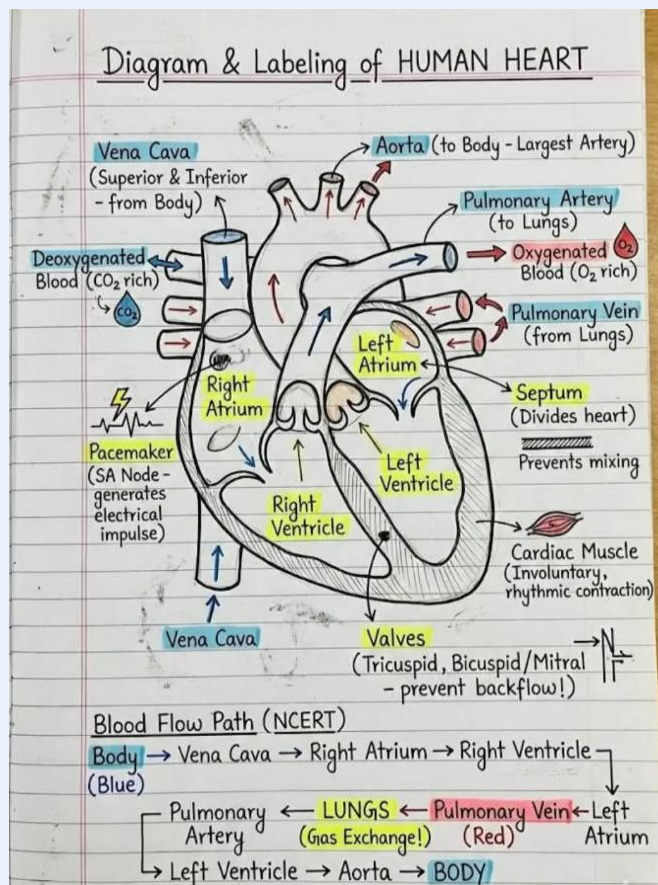 Diagram & Labeling of HUMAN HEART
Vena Cava
(Superior & Inferior
- from Body)
Aorta (to Body - Largest Artery)
Pulmonary Artery
(to Lungs)
Deoxygenated
Blood (CO₂ rich)
CO₂
Oxygenated
Blood (O₂ rich)
O₂
Pulmonary Vein
(from Lungs)
Left
Atrium
Right
Atrium
Septum
(Divides heart)
Prevents mixing
Pacemaker
(SA Node-
generates
electrical
impulse)
Left
Ventricle
Right
Ventricle
Cardiac Muscle
(Involuntary,
rhythmic contraction)
Vena Cava
Valves
(Tricuspid, Bicuspid/Mitral
- prevent backflow!)
Blood Flow Path (NCERT)
Body → Vena Cava → Right Atrium → Right Ventricle
(Blue)
Pulmonary ← LUNGS ← Pulmonary Vein ← Left
Artery (Gas Exchange!) (Red) Atrium
→ Left Ventricle → Aorta → BODY